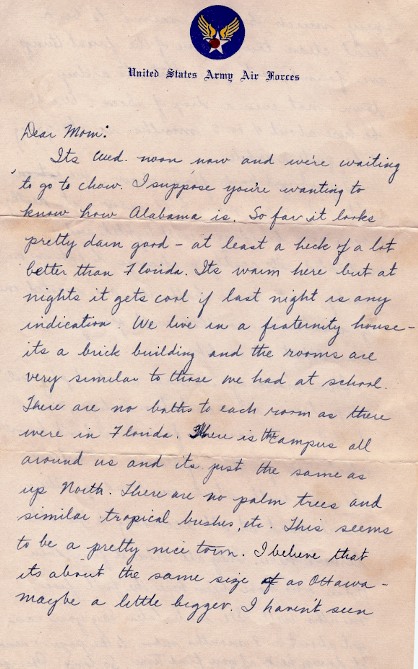 United States Army Air Forces
Dear Mom:
Its Wed. noon now and we're waiting
to go to chow. I suppose you're wanting to
know how Alabama is. So far it looks
pretty darn good - at least a heck of a lot
better than Florida. Its warm here but at
nights it gets cool if last night is any
indication. We live in a fraternity house -
its a brick building and the rooms are
very similar to those we had at school.
There are no baths to each room as there
were in Florida. There is the campus all
around us and its just the same as
up North. There are no palm trees and
similar tropical bushes, etc. This seems
to be a pretty nice town. I believe that
its about the same size as Ottawa -
maybe a little bigger. I haven't seen